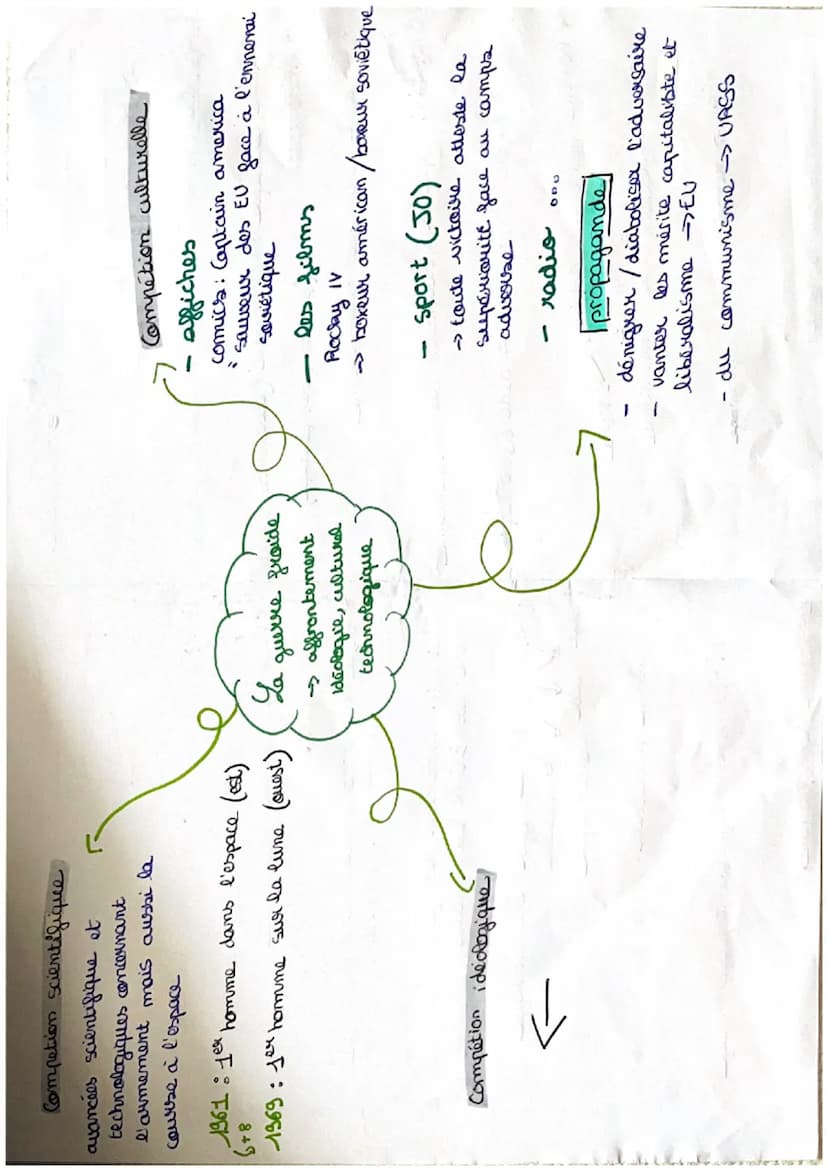 La guerre froide
→ affrontement
idéologie, culturel
technologique
Compétion scientifique
avancées scientifique et
technologiques concernant
l'armement mais aussi la
course à l'espace
1961 : 1er homme dans l'espace (est)
6+8
1969 : 1er homme sur la lune (ouest)
Compétion culturelle
- affiches
comics : Captain america
" sauveur des EU face à l'ennemi
soviétique
- les films
Rocky IV
→ boxeur américan / boxeur soviétique
- sport (JO)
→ toute victoire atteste la
supériorité face au camps
adverse
- radio ...
propagande
- dénigrer / diaboliser l'adversaire
- vanter les mérite capitaliste et
libéralisme → EU
- du communisme → URSS
Compétion idéologique
←